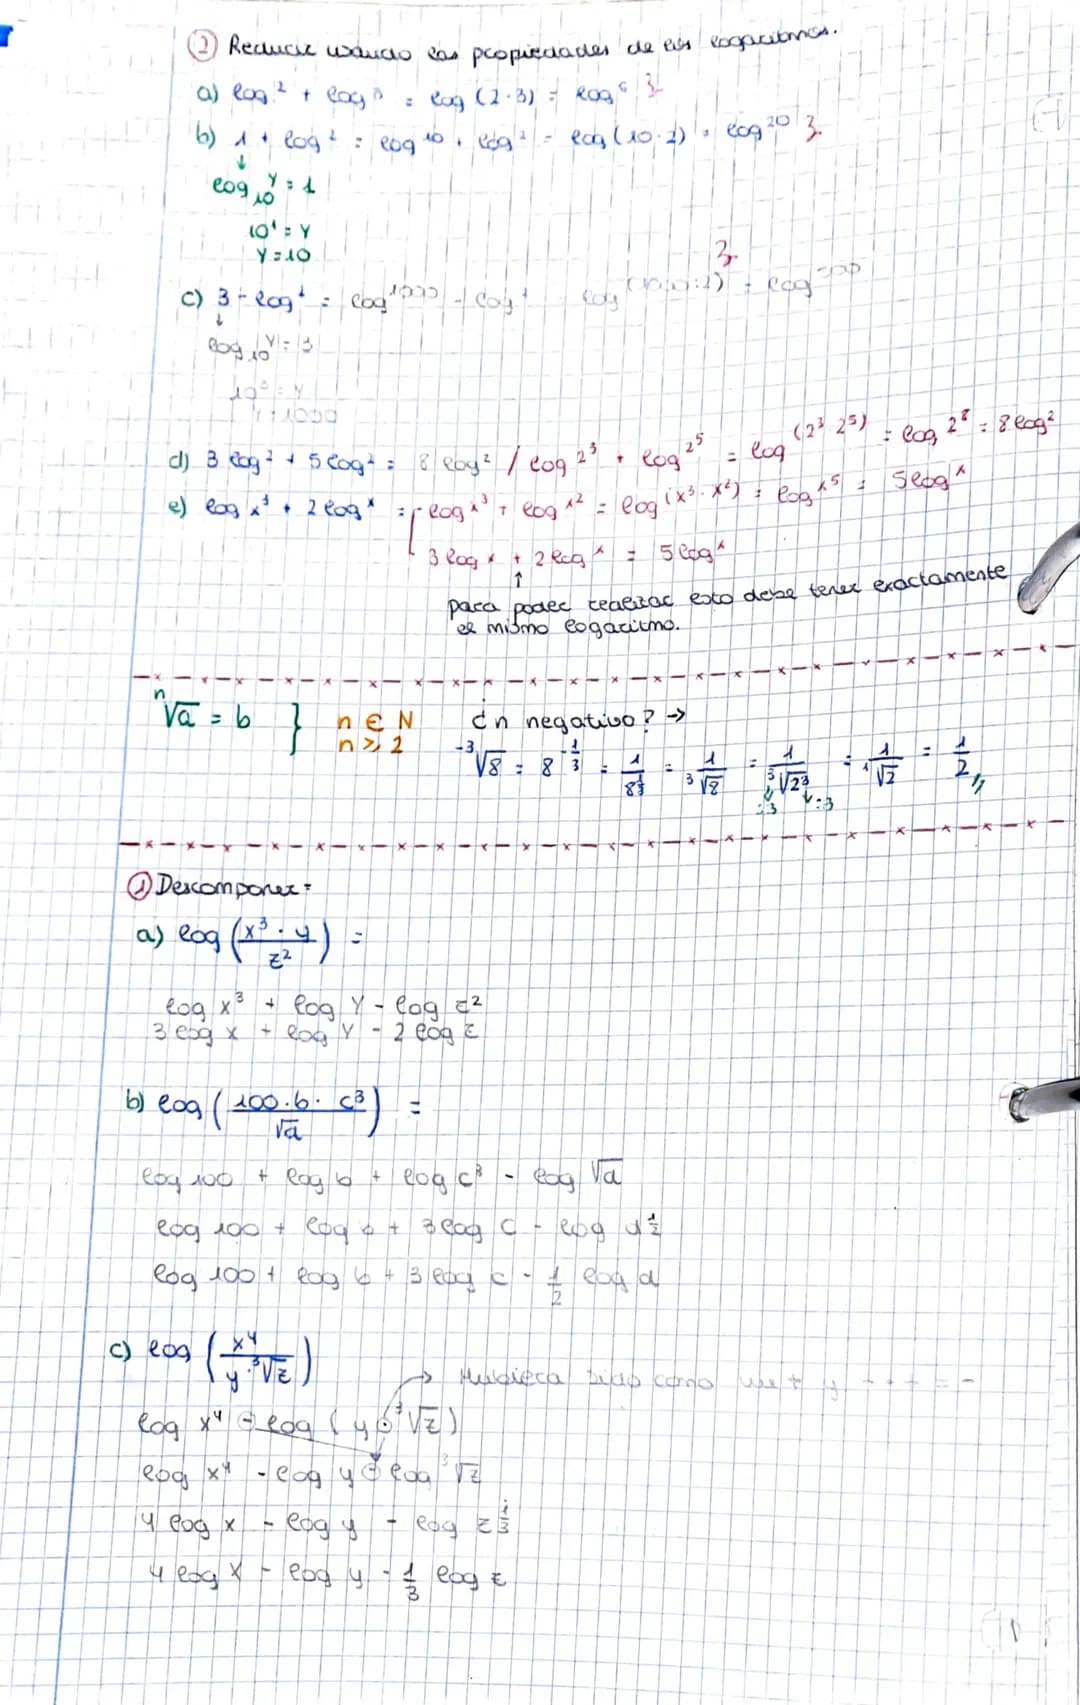 ② Reducir usando las propiedades de los logaritmos.
a) log 2 + log 3 = log (2·3) = log 6 3.
b) 1 + log 2 = log 10 + log 2 = log (10·2) = log 20 3.
↓
log₁₀ y = 1
10¹ = y
y = 10
3.
c) 3 - log 2 = log 1000 - log 2 = log
↓
log₁₀ y = 3
10³ = y
y = 1000
d) 3 log 2 + 5 log 2 = 8 log 2 / log 2³ + log 2⁵ = log (2³ 2⁵) = log 2⁸ = 8 log 2
e) log x³ + 2 log x = log x³ + log x² = log (x³·x²) = log x⁵ = 5 log x
3 log x + 2 log x = 5 log x
↑
para poder realizar esto debe tener exactamente
el mismo logaritmo.
ⁿ√a = b } n ∈ N ¿n negativo? →
n ≥ 2 ⁻³√8 = 8^(-1/3) = 1/8^(1/3) = 1/³√8 = 1/³√2³ = 1/¹√2 = 1/2
:3 :3
① Descomponer:
a) log (x³·y / z²) =
log x³ + log y - log z²
3 log x + log y - 2 log z
b) log (100·b·c³ / √d) =
log 100 + log b + log c³ - log √d
log 100 + log b + 3 log c - log d^(1/2)
log 100 + log b + 3 log c - 1/2 log d
c) log (x⁴ / y·³√z)
→ Hubiera sido como un + y - + + = -
log x⁴ - log (y·³√z)
log x⁴ - log y - log ³√z
4 log x - log y - log z^(1/3)
4 log x - log y - 1/3 log z